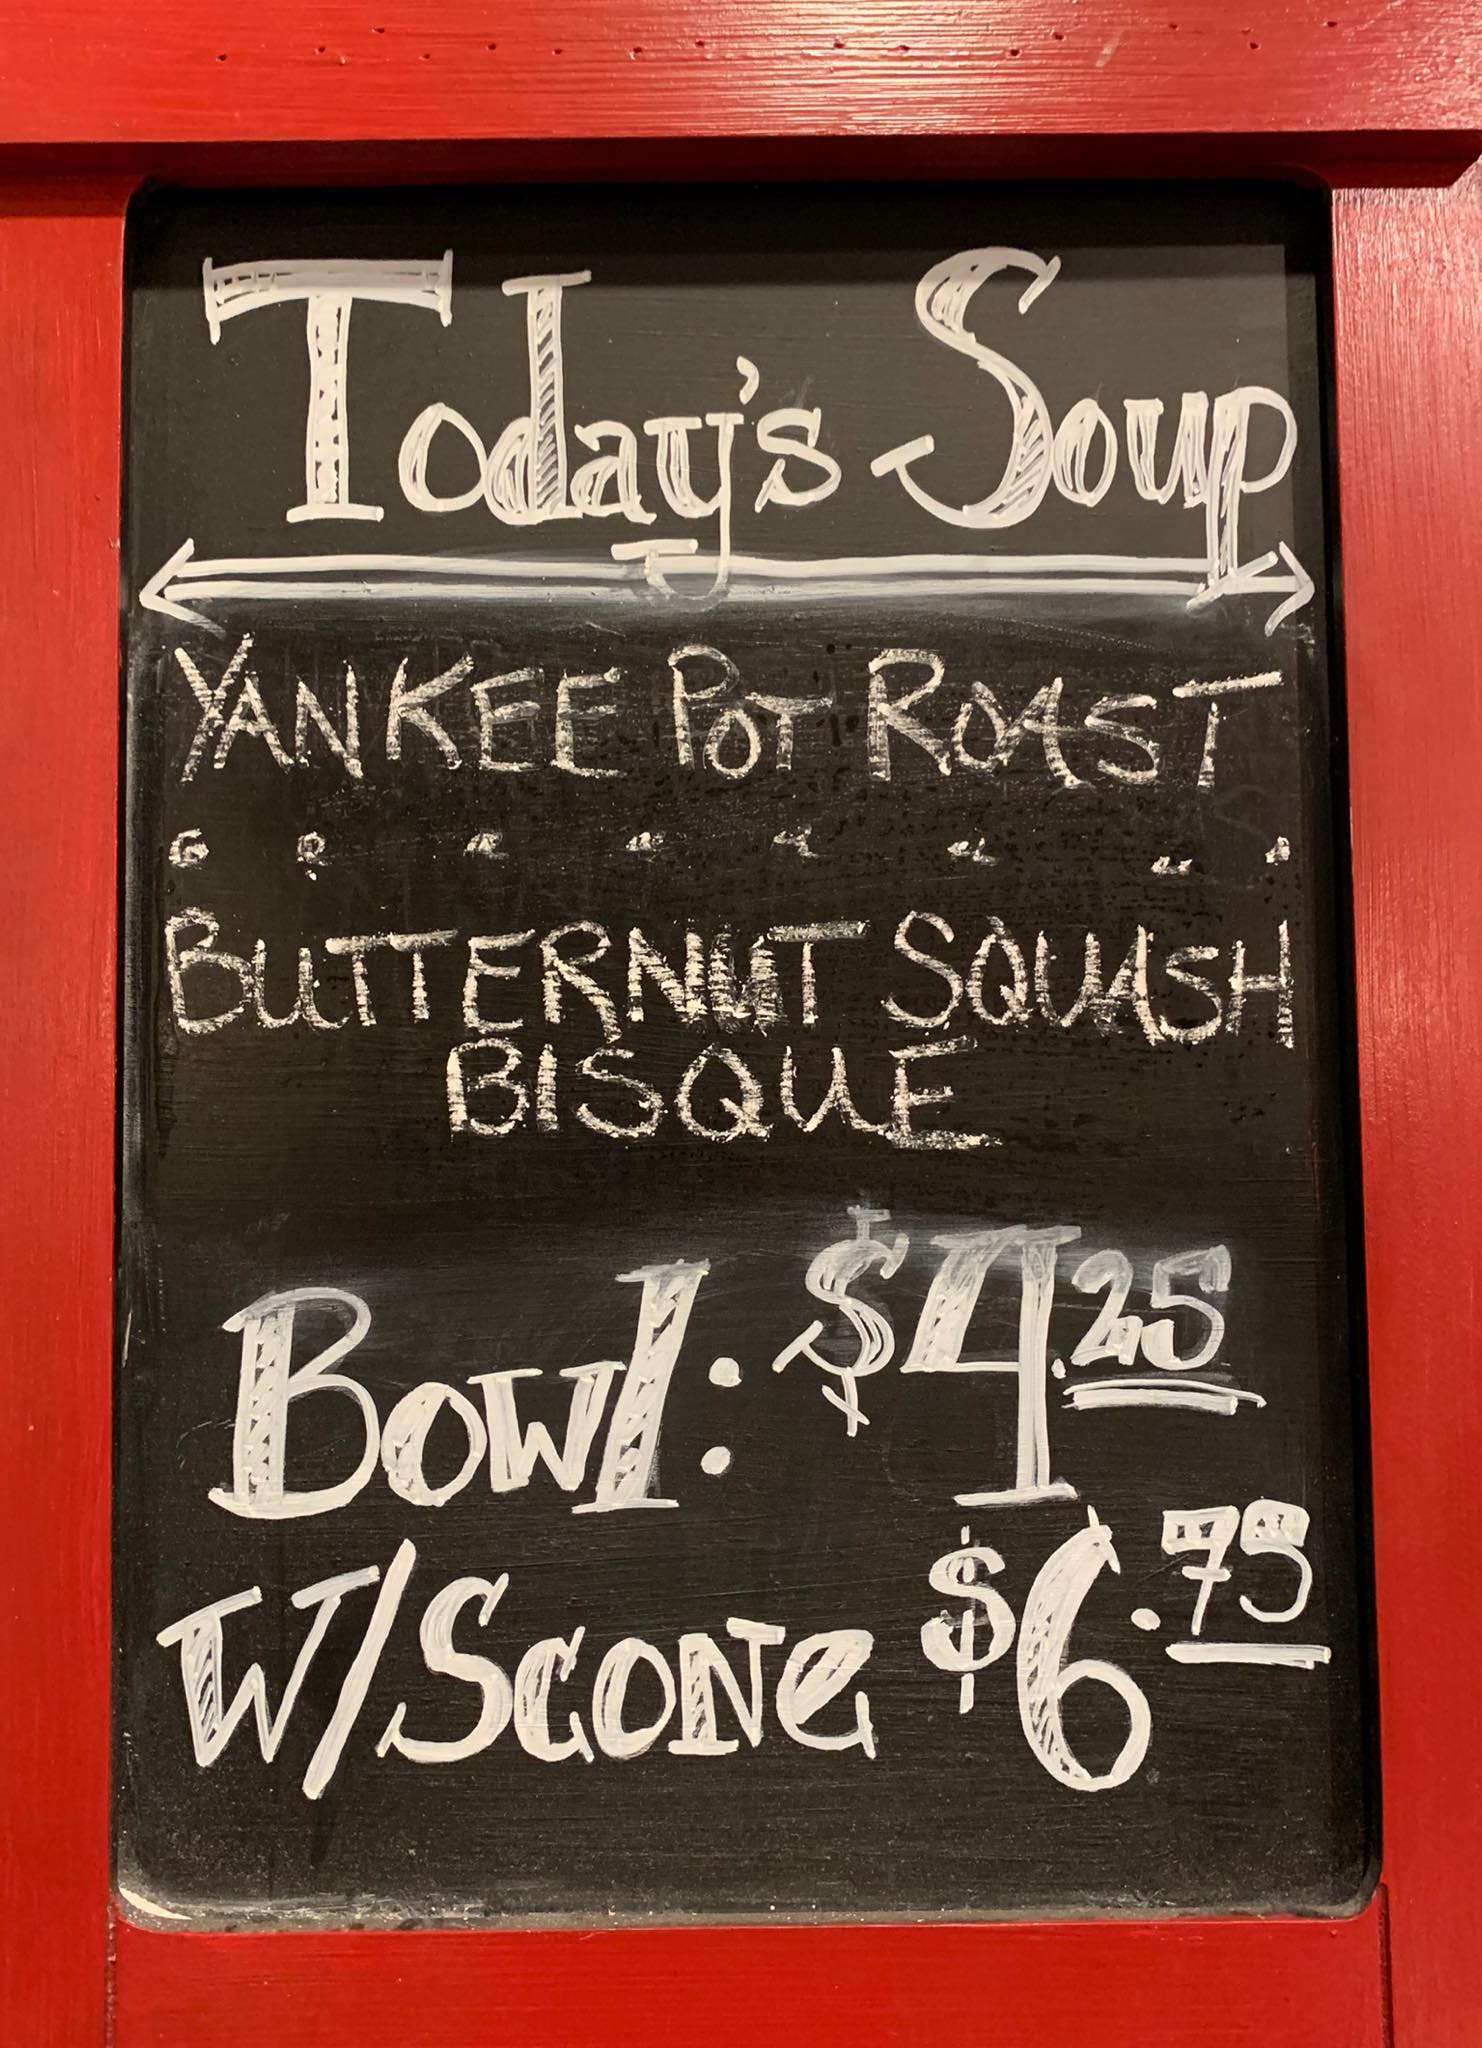 Today's Soup
YANKEE POT ROAST
BUTTERNUT SQUASH
BISQUE
Bowl: $4.25
W/SCONe $6.75